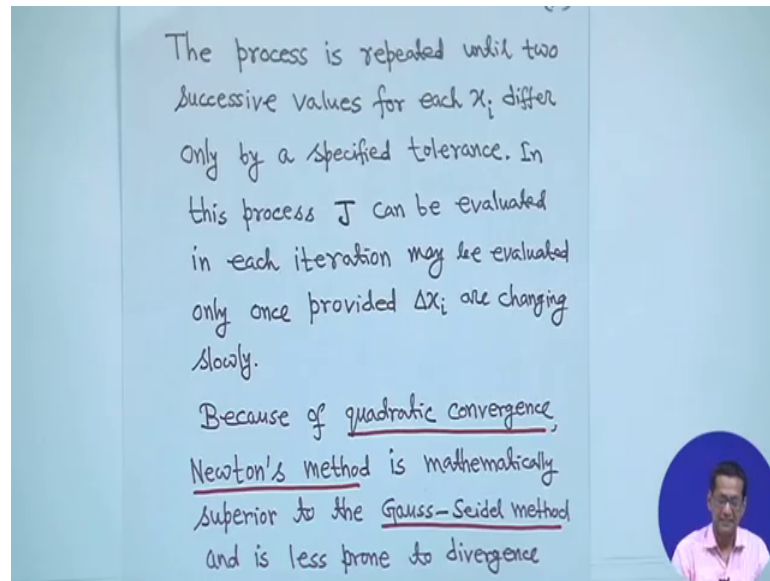 The process is repeated until two
successive values for each xᵢ differ
only by a specified tolerance. In
this process J can be evaluated
in each iteration may be evaluated
only once provided Δxᵢ are changing
slowly.
Because of quadratic convergence,
Newton's method is mathematically
superior to the Gauss-Seidel method
and is less prone to divergence